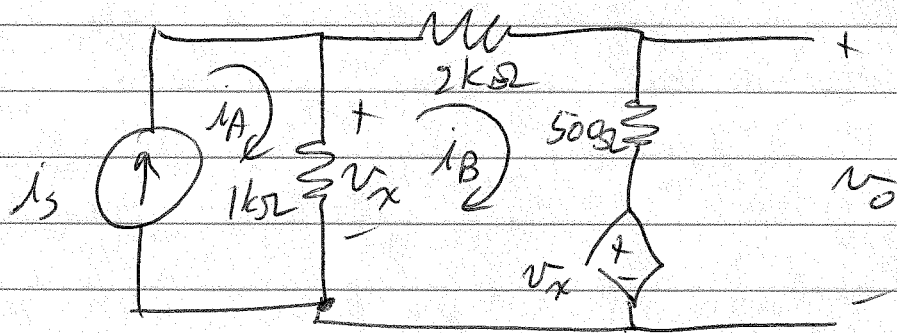 2kΩ
+
iA
+
iB
500Ω
is
1kΩ
vx
vo
−
vx
+
−
−